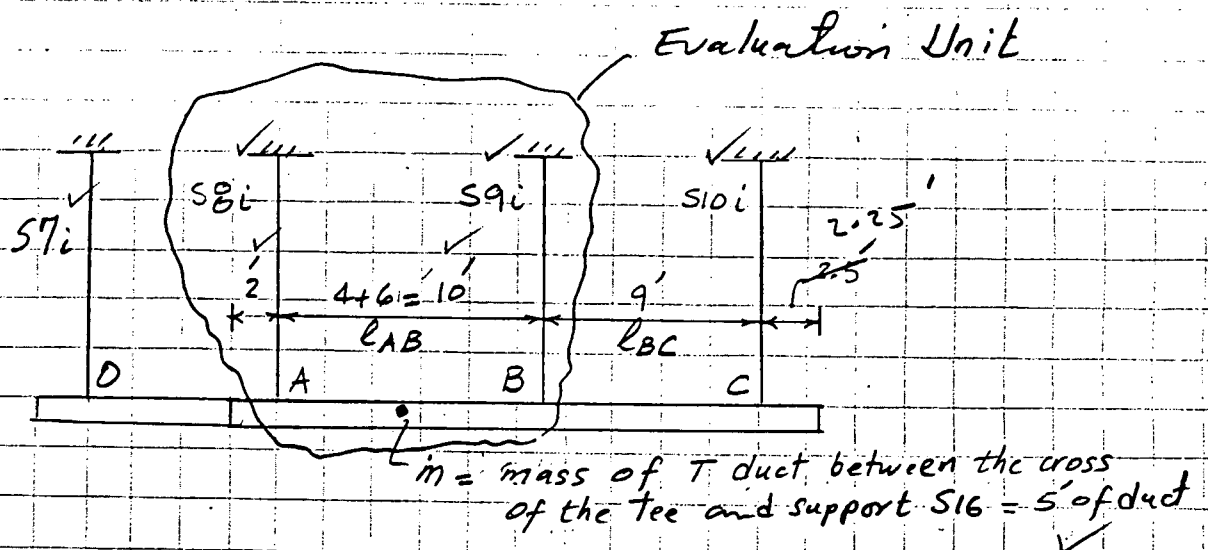 Evaluation Unit
S7i
S8i
S9i
S10i
2.25'
2.5'
2'
4+6=10'
9'
lAB
lBC
O
A
B
C
m = mass of T duct between the cross
of the Tee and support S16 = 5' of duct